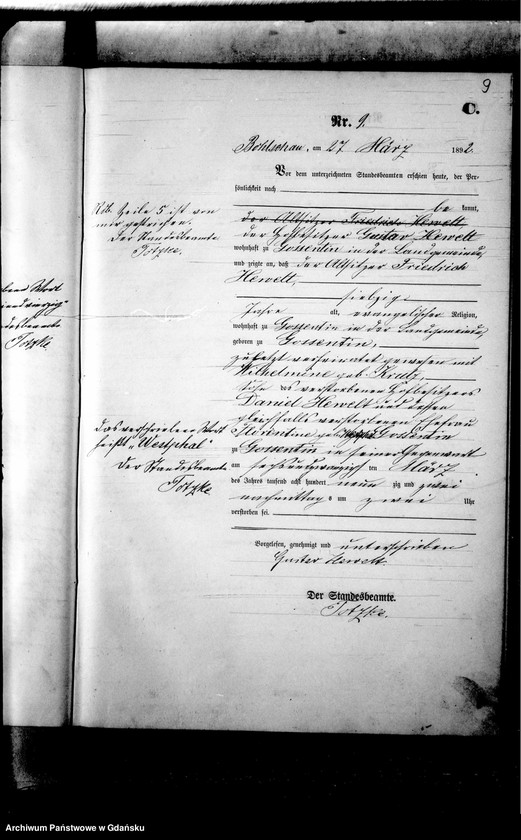 9
C.
Nr. 9.
Bohlschau, am 27 März 1892.
Vor dem unterzeichneten Standesbeamten erschien heute, der Per-
sönlichkeit nach
be kannt,
der Altsitzer Friedrich Hewelt,
der Hofbesitzer Gustav Hewelt
wohnhaft zu Gossentin in der Landgemeinde,
und zeigte an, daß der Altsitzer Friedrich
Hewelt,
siebzig
Jahre alt, evangelischer Religion,
wohnhaft zu Gossentin in der Landgemeinde,
geboren zu Gossentin,
zuletzt verheirathet gewesen mit
Wilhelmine geb. Krutz,
Sohn des verstorbenen Hofbesitzers
Daniel Hewelt und dessen
gleichfalls verstorbenen Ehefrau
Florentine geb. Gossentin
zu Gossentin in seiner Gegenwart
am sechsundzwanzigsten März
des Jahres tausend acht hundert neun zig und zwei
nachmittags um zwei Uhr
verstorben sei.
Vorgelesen, genehmigt und unterschrieben
Gustav Hewelt.
Der Standesbeamte.
Totzke.
Nb. Zeile 5 ist von
mir gestrichen.
Der Standesbeamte
Totzke.
Das verschriebene Wort
heißt "Westphal"
Der Standesbeamte
Totzke
Totzke
Archiwum Państwowe w Gdańsku